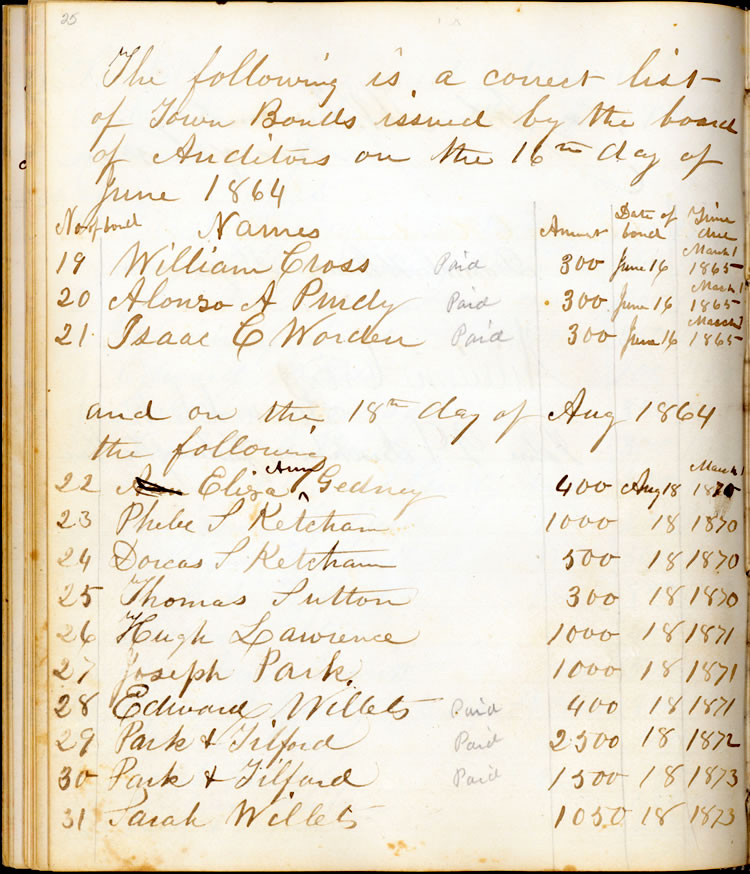 25
The following is a correct list
of Town Bonds issued by the board
of Auditors on the 16th day of
June 1864
No of bond Names Amount Date of bond Time due
19 William Cross Paid 300 June 16 March 1 1865
20 Alonzo A Purdy Paid 300 June 16 March 1 1865
21 Isaac C Worden Paid 300 June 16 March 1 1865
and on the 18th day of Aug 1864
the following
22 Eliza Ann Gedney 400 Aug 18 March 1 1870
23 Phebe S Ketcham 1000 18 1870
24 Dorcas S Ketcham 500 18 1870
25 Thomas Sutton 300 18 1870
26 Hugh Lawrence 1000 18 1871
27 Joseph Park 1000 18 1871
28 Edward Willets Paid 400 18 1871
29 Park & Tilford Paid 2500 18 1872
30 Park & Tilford Paid 1500 18 1873
31 Sarah Willets 1050 18 1873